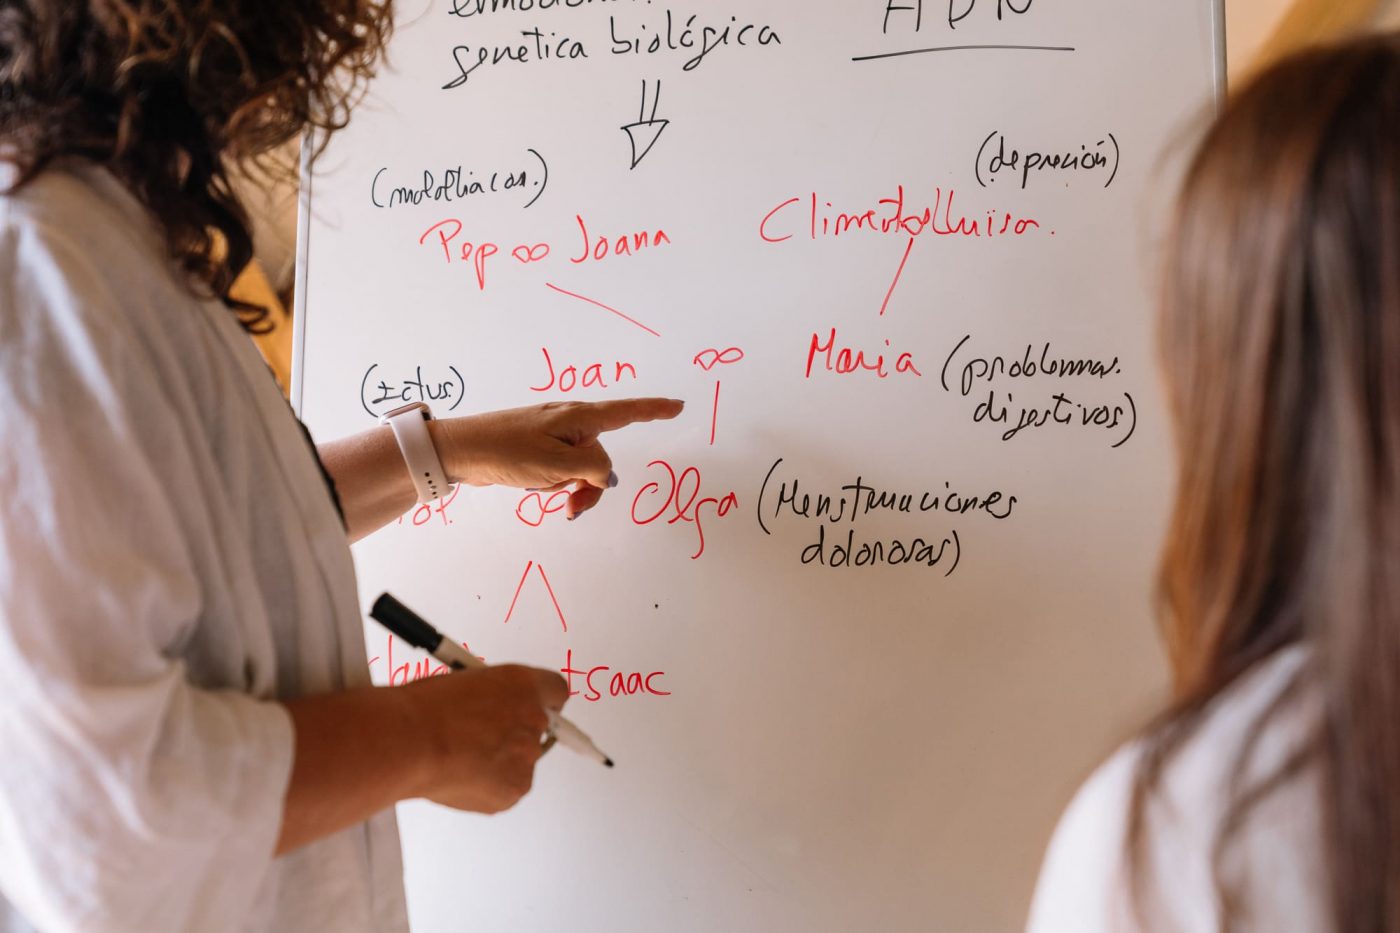 genética biológica
ADN
(depreción)
Pep ∞ Joana
Climent ∞ Lluisa.
(Ictus.)
Joan ∞ Maria (problemas.
digestivos)
∞ Olga (Menstruaciones
dolorosas)
Isaac